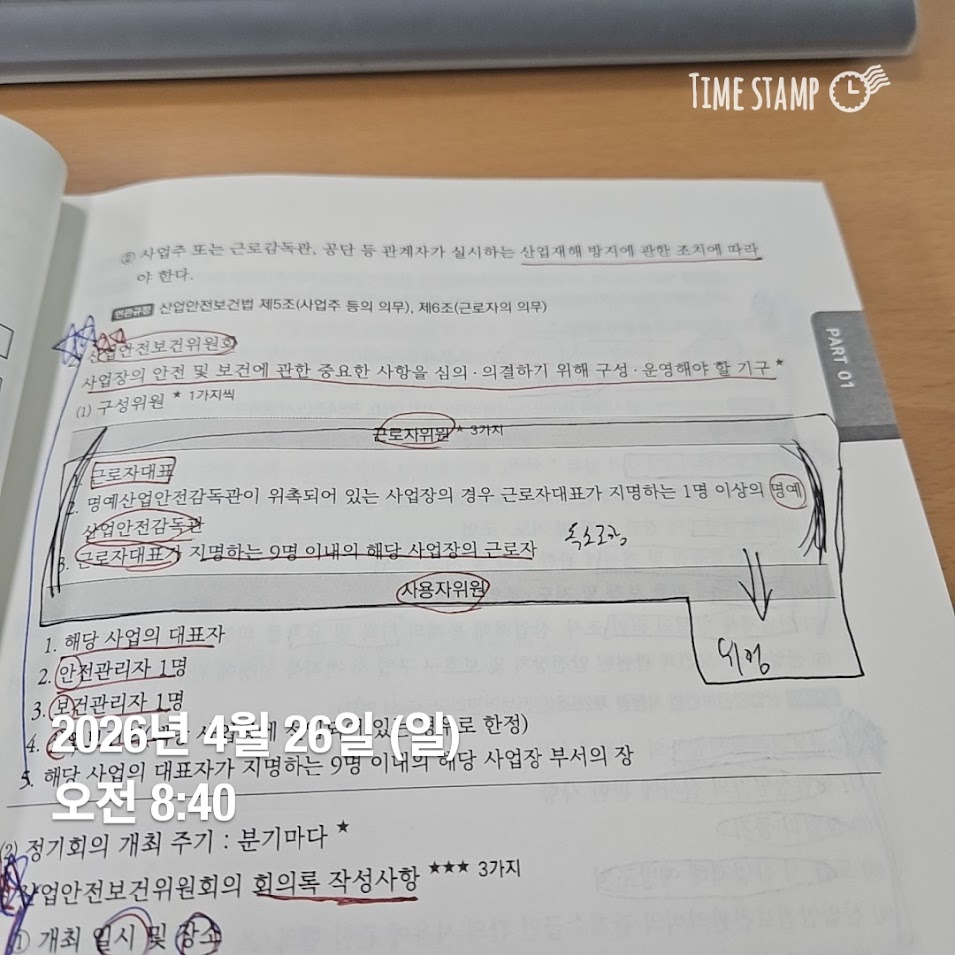 TIME STAMP
② 사업주 또는 근로감독관, 공단 등 관계자가 실시하는 산업재해 방지에 관한 조치에 따라
야 한다.
연관규정 산업안전보건법 제5조(사업주 등의 의무), 제6조(근로자의 의무)
산업안전보건위원회
사업장의 안전 및 보건에 관한 중요한 사항을 심의·의결하기 위해 구성·운영해야 할 기구 ★
(1) 구성위원 ★ 1가지씩
근로자위원 ★ 3가지
1. 근로자대표
2. 명예산업안전감독관이 위촉되어 있는 사업장의 경우 근로자대표가 지명하는 1명 이상의 명예
산업안전감독관
3. 근로자대표가 지명하는 9명 이내의 해당 사업장의 근로자
사용자위원
1. 해당 사업의 대표자
2. 안전관리자 1명
3. 보건관리자 1명
4. 있는 경우로 한정)
5. 해당 사업의 대표자가 지명하는 9명 이내의 해당 사업장 부서의 장
2026년 4월 26일 (일)
오전 8:40
(2) 정기회의 개최 주기 : 분기마다 ★
산업안전보건위원회의 회의록 작성사항 ★★★ 3가지
① 개최 일시 및 장소
PART 01